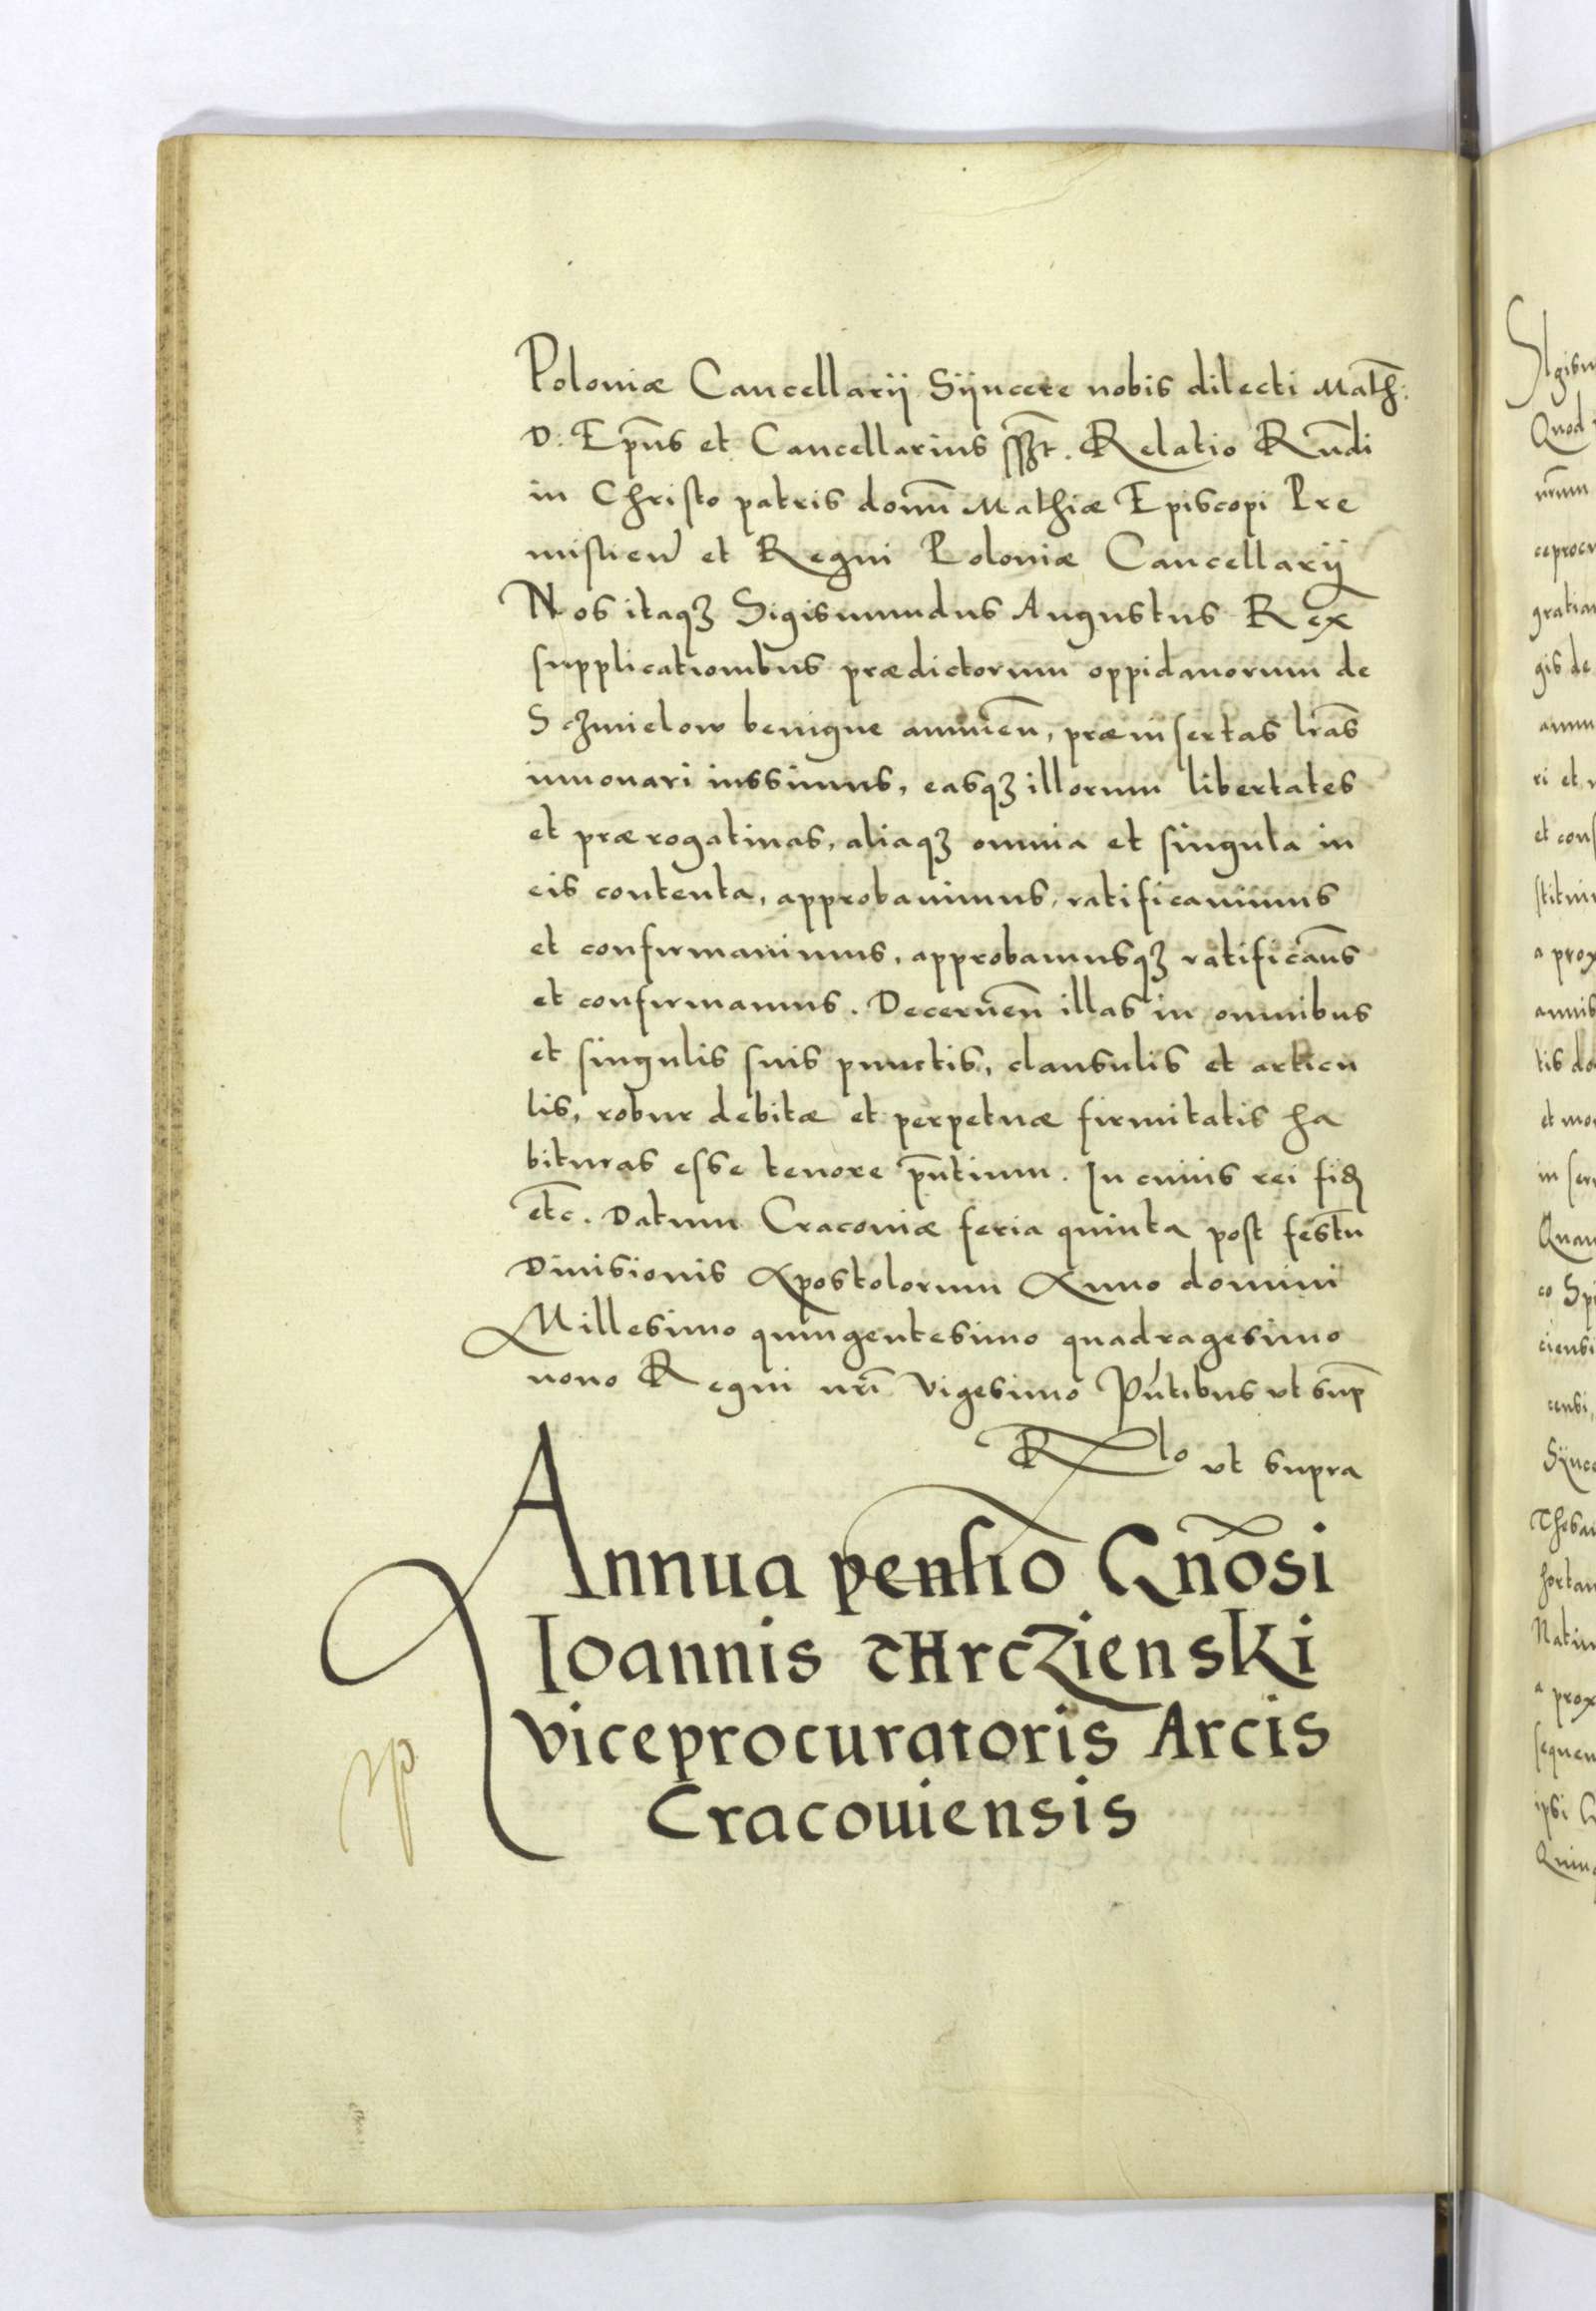 Poloniæ Cancellarij Sÿncere nobis dilecti Math:
D. Ep̃us et Cancellarius sszt. Relatio Rũdi
in Christo patris domĩ Mathiæ Episcopi Pre
mislien̄ et Regni Poloniæ Cancellarij
Nos itaqȝ Sigismundus Augustus Rex
supplicationibus prædictorum oppidanorum de
Sczmielow benigne annuen̄, præinsertas lr̃as
innouari iussimus, easqȝ illorum libertates
et prærogatiuas, aliaqȝ omnia et singula in
eis contenta, approbauimus, ratificauimus
et confirmauimus, approbamusqȝ ratificam̃s
et confirmamus. Decernen̄ illas in omnibus
et singulis suis punctis, clausulis et articu
lis, robur debitæ et perpetuæ firmitatis ha
bituras esse tenore p̃ntium. In cuius rei fid
etc̃. Datum Cracouiæ feria quinta post festũ
Diuisionis Apostolorum Anno domini
Millesimo quingentesimo quadragesimo
nono Regni nr̃i vigesimo P̃ntibus vt sup̃
Rlo vt supra
Annua pensio Gño̅si
Ioannis THrczienski
viceprocuratoris Arcis
Cracouiensis